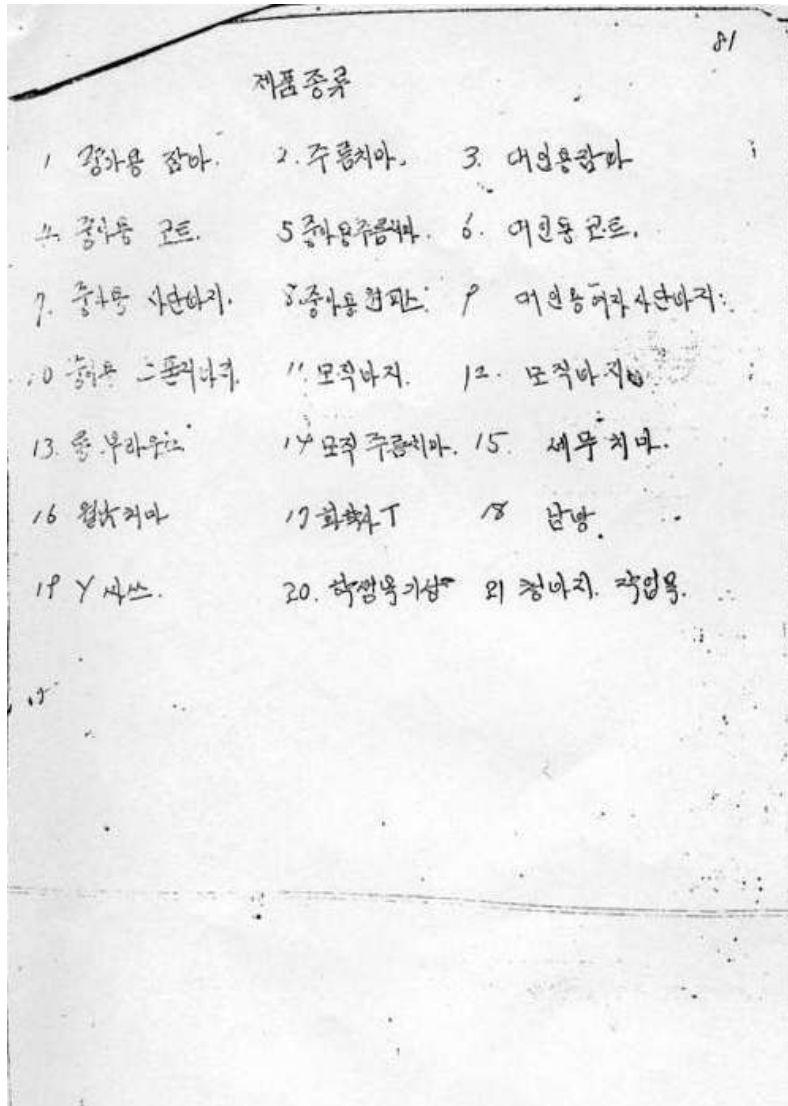 81
제품종류
1 중아용 잠바. 2. 주름치마. 3. 대인용잠바
4. 중아용 코트. 5 중아용주름치마. 6. 대인용 코트.
7. 중아용 사단바지. 8. 중아용원피스. 9 대인용여자사단바지.
10 중아용 11. 모직바지. 12. 모직바지
13. 부라우스 14 모직 주름치마. 15. 세무치마.
16 월남치마 17 화학사T 18 남방.
19 Y 샤쓰. 20. 학생복기성 외 청바지. 작업복.